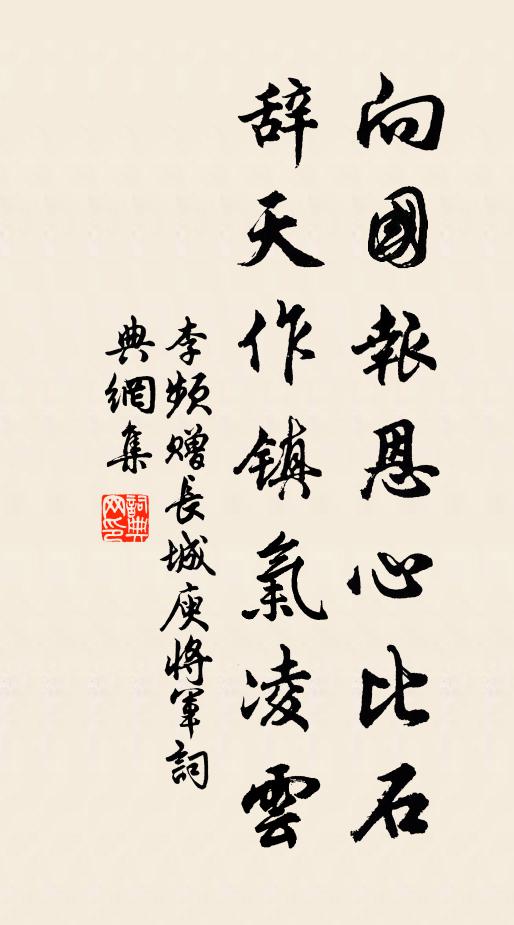 向國報恩心比石
辞天作镇氣凌雲
李頻赠長城庾將軍詞
典網集
詞典
网印